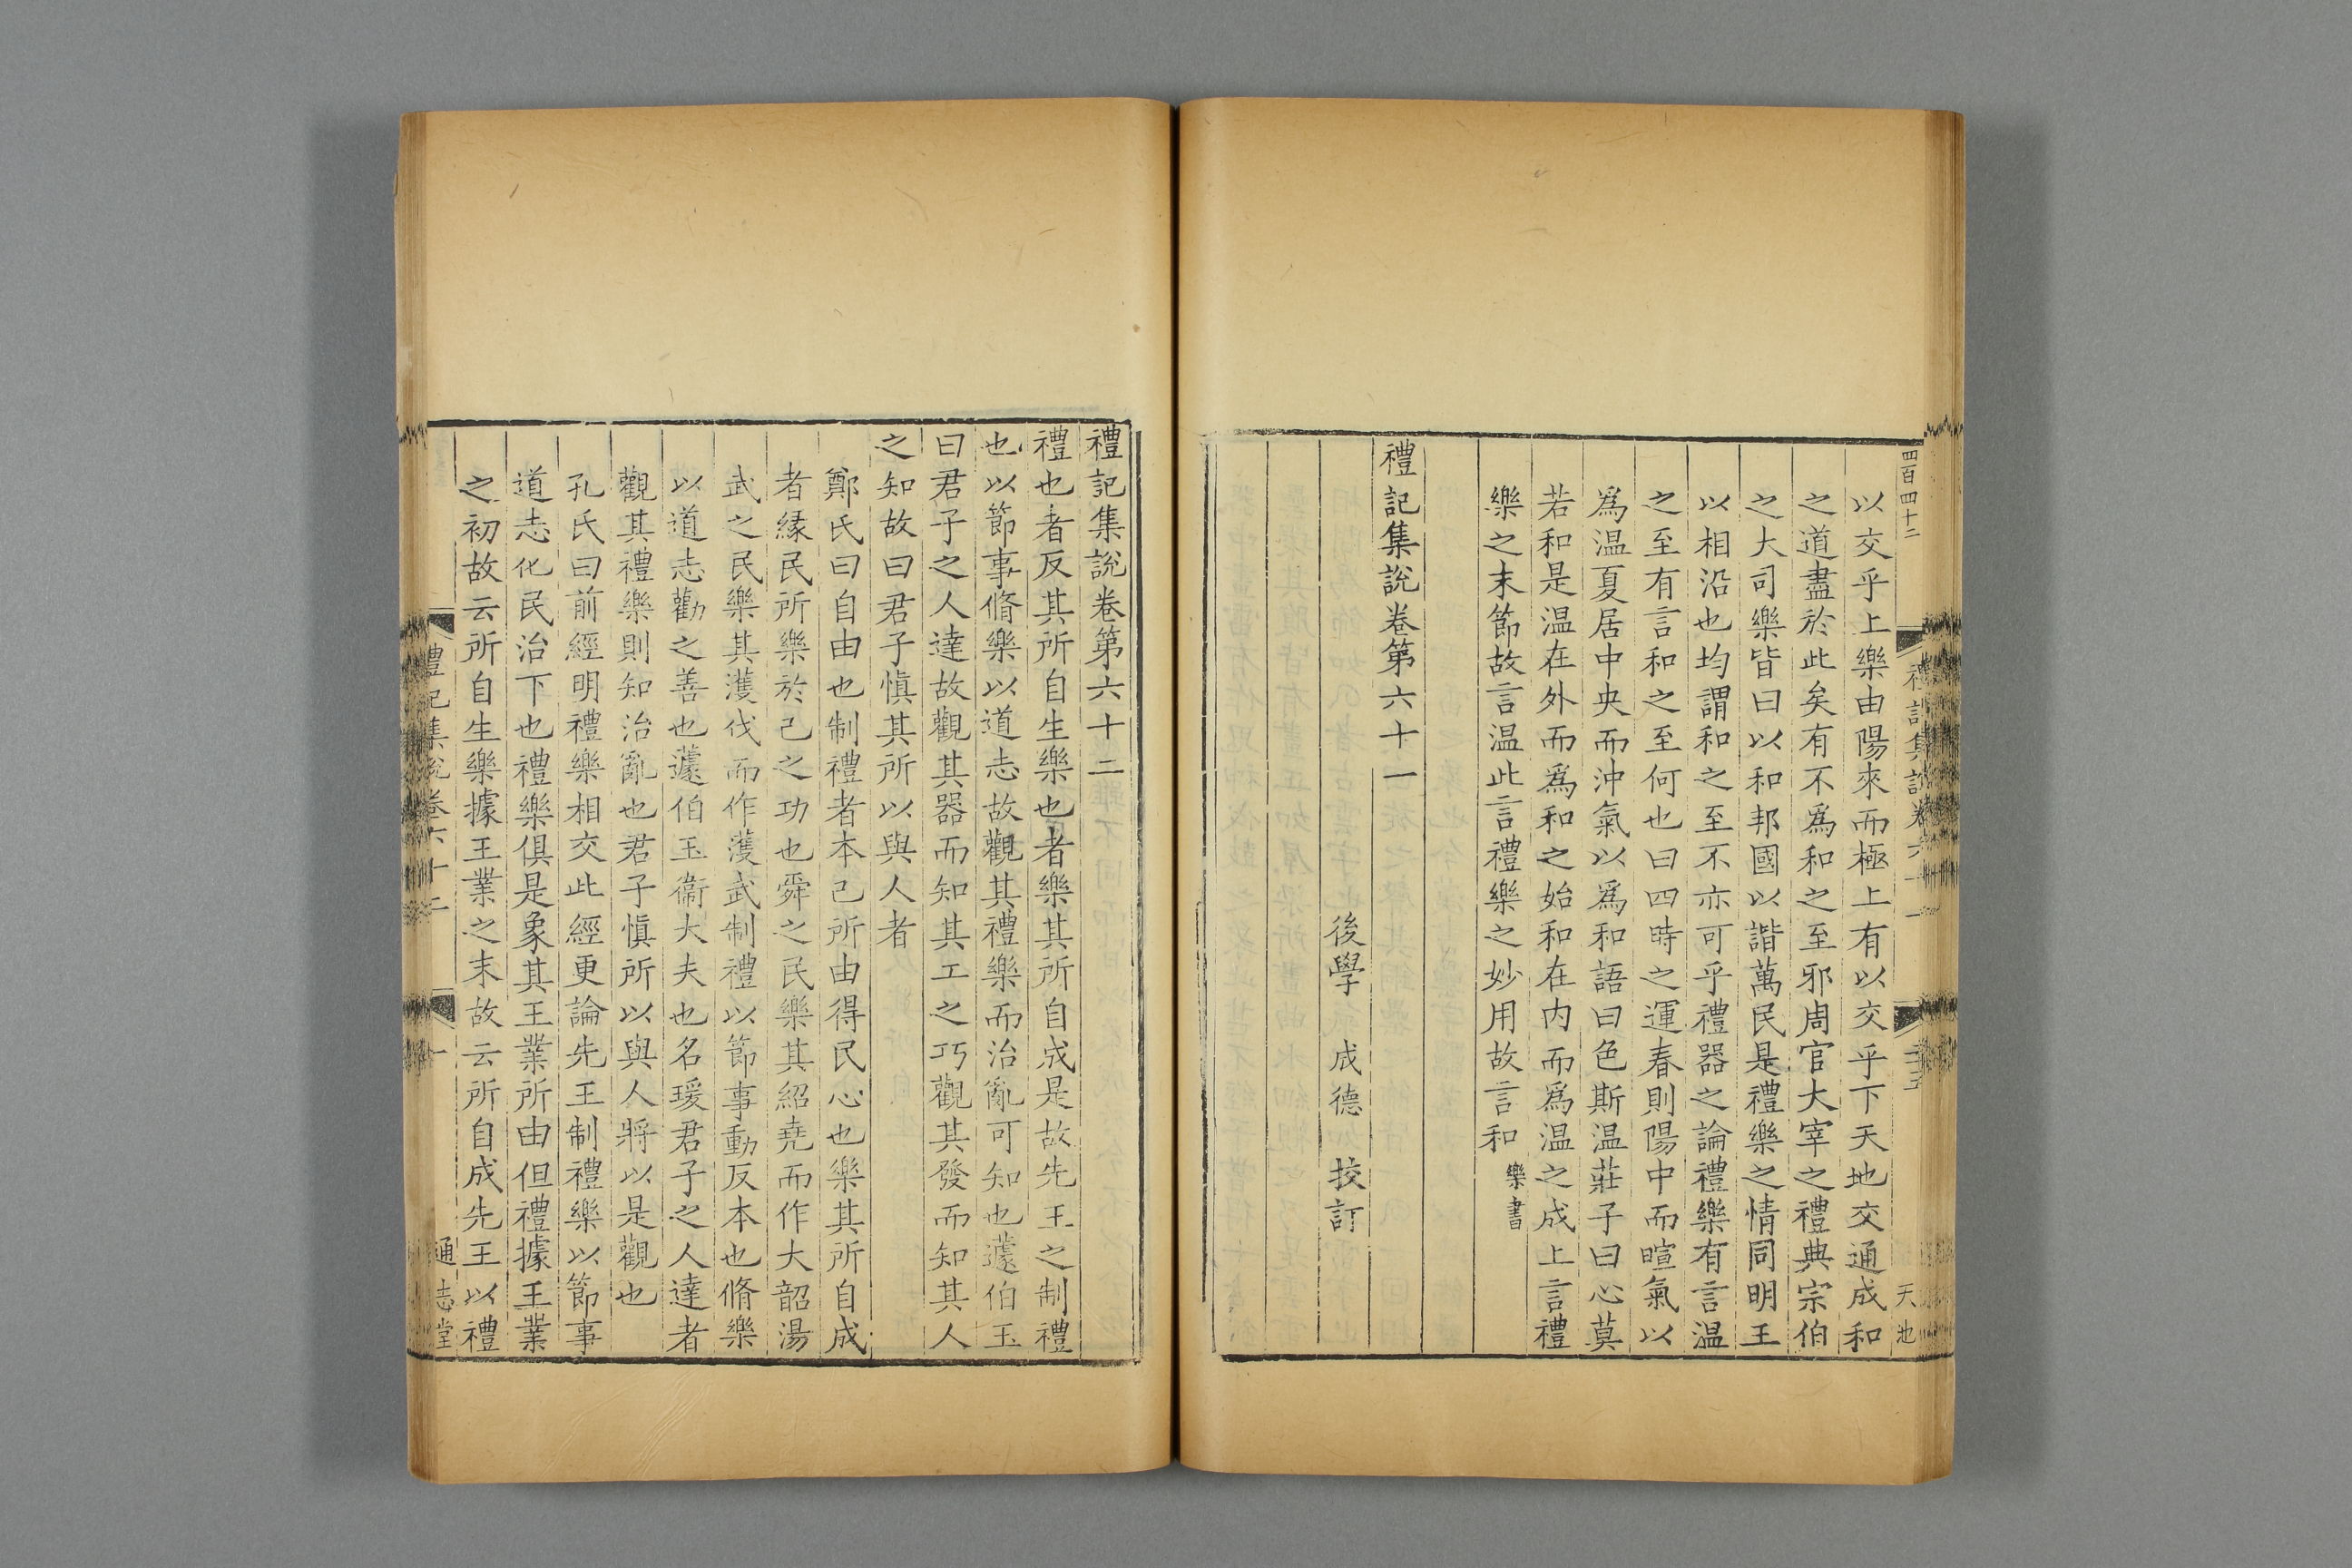 四百四十二
禮記集說卷六十一
天池
以交乎上樂由陽來而極上有以交乎下天地交通成和
之道盡於此矣有不爲和之至邪周官大宰之禮典宗伯
之大司樂皆曰以和邦國以諧萬民是禮樂之情同明王
以相沿也均謂和之至不亦可乎禮器之論禮樂有言温
之至有言和之至何也曰四時之運春則陽中而暄氣以
爲温夏居中央而沖氣以爲和語曰色斯温莊子曰心莫
若和是温在外而爲和之始和在内而爲温之成上言禮
樂之末節故言温此言禮樂之妙用故言和樂書
禮記集說卷第六十一
後學 成德 挍訂
禮記集說卷第六十二
禮也者反其所自生樂也者樂其所自成是故先王之制禮
也以節事脩樂以道志故觀其禮樂而治亂可知也蘧伯玉
曰君子之人達故觀其器而知其工之巧觀其發而知其人
之知故曰君子慎其所以與人者
鄭氏曰自由也制禮者本己所由得民心也樂其所自成
者緣民所樂於己之功也舜之民樂其紹堯而作大韶湯
武之民樂其濩伐而作濩武制禮以節事動反本也脩樂
以道志勸之善也蘧伯玉衞大夫也名瑗君子之人達者
觀其禮樂則知治亂也君子慎所以與人將以是觀也
孔氏曰前經明禮樂相交此經更論先王制禮樂以節事
道志化民治下也禮樂俱是象其王業所由但禮據王業
之初故云所自生樂據王業之末故云所自成先王以禮
禮記集說卷六十二
一
通志堂